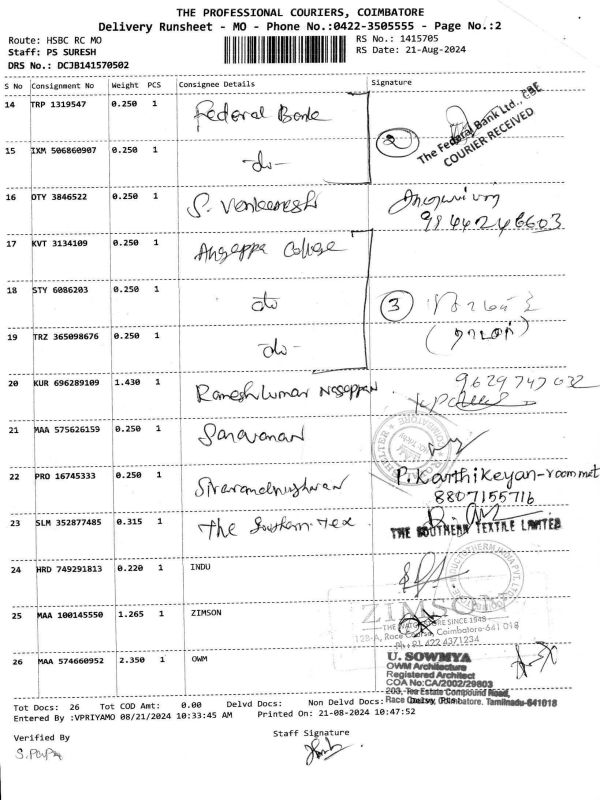 THE PROFESSIONAL COURIERS, COIMBATORE
Delivery Runsheet - MO - Phone No.:0422-3505555 - Page No.:2
Route: HSBC RC MO
RS No.: 1415705
Staff: PS SURESH
RS Date: 21-Aug-2024
DRS No.: DCJB141570502
S No Consignment No Weight PCS Consignee Details Signature
14 TRP 1319547 0.250 1 Federal Bank
The Federal Bank Ltd., CBE
COURIER RECEIVED
2
15 IXM 506860907 0.250 1 -do-
16 OTY 3846522 0.250 1 S. Venkatesh
9844246603
17 KVT 3134109 0.250 1 Angappa College
18 STY 6086203 0.250 1 do
3
19 TRZ 365098676 0.250 1 -do-
20 KUR 696289109 1.430 1 Rameshkumar Nagappan
9629747032
21 MAA 575626159 0.250 1 Saravanan
22 PRO 16745333 0.250 1
P. Karthikeyan-roommet
8807155716
23 SLM 352877485 0.315 1 The Southern Tex
THE SOUTHERN TEXTILE LIMITED
24 HRD 749291813 0.220 1 INDU
25 MAA 100145550 1.265 1 ZIMSON
ZIMSON
THE WATCH STORE SINCE 1948
128-A, Race Course, Coimbatore-641 018
Ph: 91 422 4371234
26 MAA 574660952 2.350 1 OWM
U. SOWMYA
OWM Architecture
Registered Architect
COA No:CA/2002/29803
203, Tea Estate Compound Road,
Race Course, Coimbatore. Tamilnadu-641018
Tot Docs: 26 Tot COD Amt: 0.00 Delvd Docs: Non Delvd Docs:
Entered By :VPRIYAMO 08/21/2024 10:33:45 AM Printed On: 21-08-2024 10:47:52
Verified By
Staff Signature